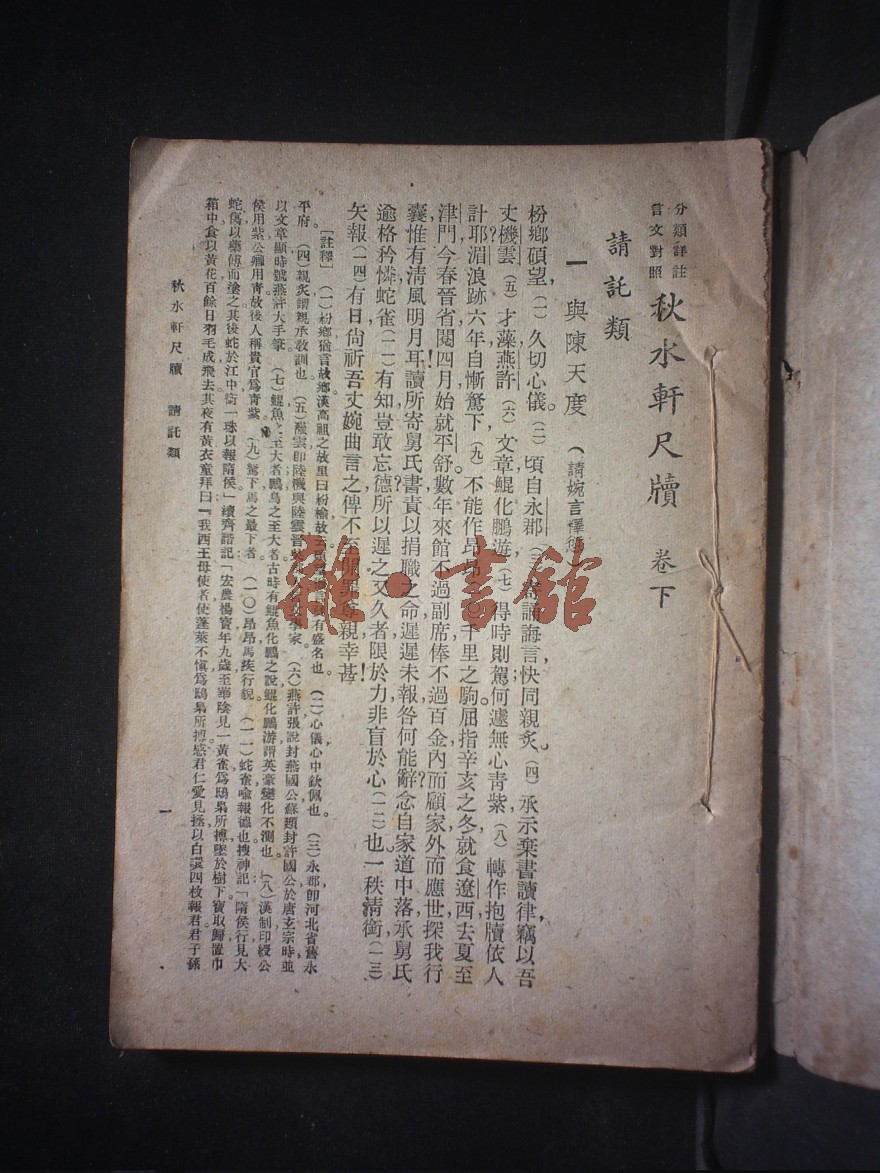 分類詳註
言文對照
秋水軒尺牘 卷下
請託類
一 與陳天度 (請婉言釋愆)
枌鄉碩望,(一)久切心儀(二)頃自永郡(三)誦誨言快同親炙。(四)承示棄書讀律,竊以吾
丈機雲(五)才藻,燕許(六)文章,鯤化鵬遊,(七)得時則駕,何遽無心青紫,(八)轉作抱牘依人
計耶?湄浪跡六年,自慚駑下,(九)不能作昂昂千里之駒。屈指辛亥之冬,就食遼西,去夏至
津門,今春晉省,閱四月始就平舒。數年來館不過副席,俸不過百金,內而顧家,外而應世,探我行
囊,惟有清風明月耳!讀所寄舅氏書,責以捐職之命,遲遲未報,咎何能辭?念自家道中落,承舅氏
逾格矜憐,蛇雀(一一)有知,豈敢忘德?所以遲之又久者,限於力,非盲於心(一二)也。一秩清銜,(一三)
矢報(一四)有日,尙祈吾丈婉曲言之,俾不至開罪尊親,幸甚!
「註釋」(一)枌鄉猶言故鄉,漢高祖之故里曰枌榆,故有盛名也。(二)心儀心中欽佩也。(三)永郡卽河北省舊永
平府。(四)親炙謂親承敎訓也。(五)機雲卽陸機與陸雲,晉家。(六)燕許張說封燕國公,蘇頲封許國公,於唐玄宗時並
以文章顯,時號燕許大手筆。(七)鯤魚之至大者,鵬鳥之至大者,古時有鯤魚化鵬之說,鯤化鵬游謂英豪變化不測也。(八)漢制印綬,公
侯用紫,公卿用青,故後人稱貴官爲青紫。(九)駑下馬之最下者。(一〇)昂昂馬疾行貌。(一一)蛇雀喩報德也,搜神記「隋侯行見大
蛇傷,以藥傅而塗之,其後蛇於江中銜一珠以報隋侯。」續齊諧記「宏農楊寶年九歲,至華陰見一黃雀爲鴟梟所搏,墜於樹下,寶取歸置巾
箱中,食以黃花,百餘日羽毛成飛去,其夜有黃衣童拜曰『我西王母使者,使蓬萊不愼爲鴟梟所搏,感君仁愛見拯,以白環四枚報君,君子孫
秋水軒尺牘 請託類
一
雜·書館